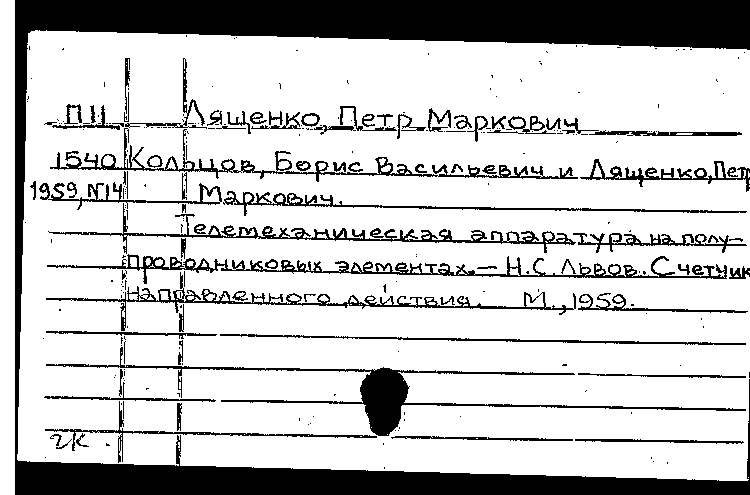 П11 Лященко, Петр Маркович
1540 Кольцов, Борис Васильевич и Лященко, Петр
1959, N14 Маркович.
Телемеханическая аппаратура на полу-
проводниковых элементах. — Н.С. Львов. Счетчик
направленного действия. М., 1959.
гк.